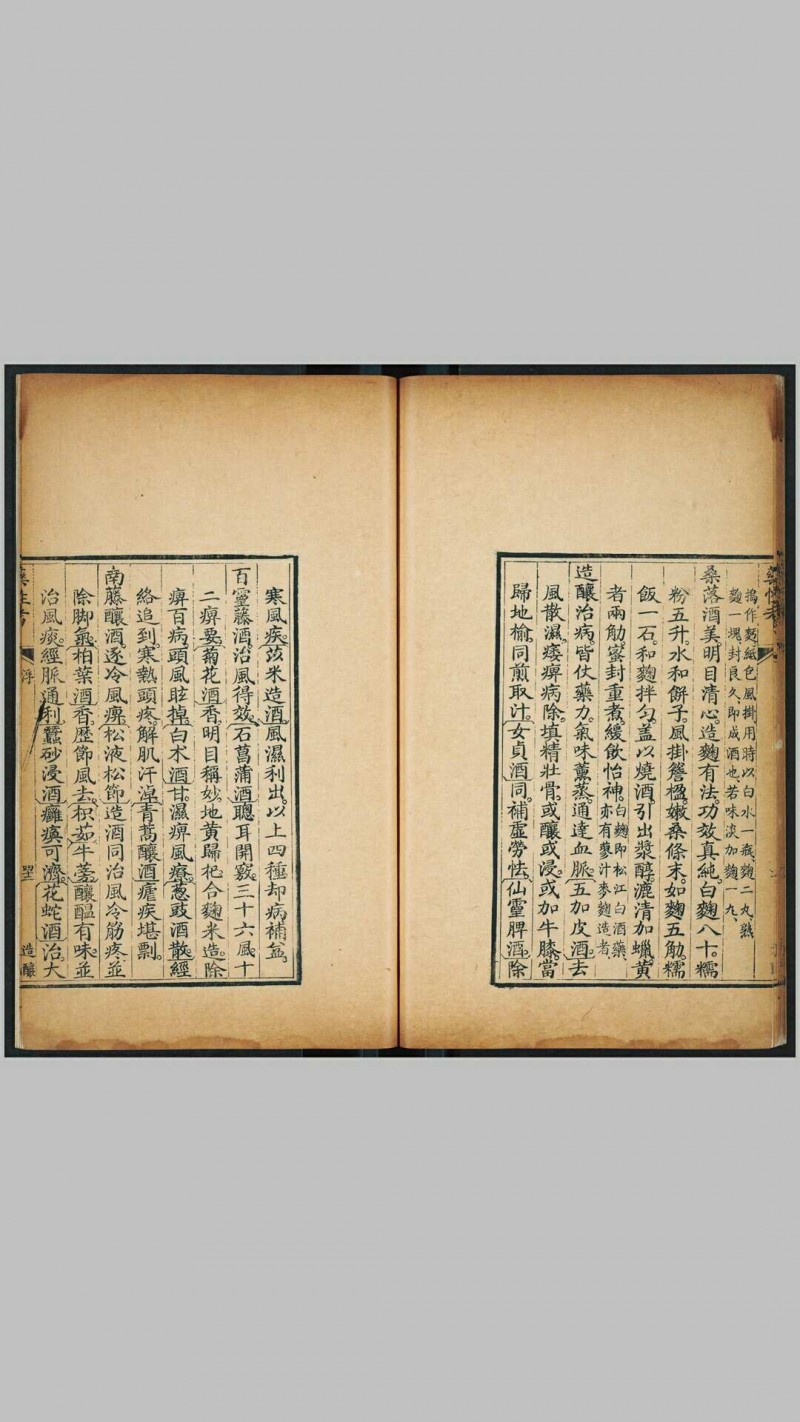 搗作麪紙包風掛用時以白水一瓶麴二丸熟
麴一塊封良久即成酒也若味淡加麴一丸
桑落酒美明目清心造麴有法功效真純白麴八十糯
粉五升水和餅子風掛簷楹嫩桑條末如麴五觔糯
飯一石和麴拌勻蓋以燒酒引出漿醇漉清加蠟黃
者兩觔蜜封重煮緩飲怡神白麴即松江白酒藥
亦有蓼汁麥麴造者
造釀治病皆仗藥力氣味薰蒸通達血脈五加皮酒去
風散濕痿痺病除填精壯骨或釀或浸或加牛膝當
歸地榆同煎取汁女貞酒同補虛勞怯仙靈脾酒除
寒風疾苡米造酒風濕利出以上四種却病補益
百靈藤酒治風得效石菖蒲酒聰耳開竅三十六風十
二痺要菊花酒香明目稱妙地黃歸杞合麴米造除
痺百病頭風眩掉白朮酒甘濕痺風療葱豉酒散經
絡追到寒熱頭疼解肌汗淖青蒿釀酒瘧疾堪剽
南藤釀酒逐冷風痺松液松節造酒同治風冷筋疼並
除脚氣柏葉酒香歷節風去枳茹牛蒡釀醞有味並
治風痰經脈通利蠶砂浸酒癱瘓可濟花蛇酒治大
藥性考
浮
造釀